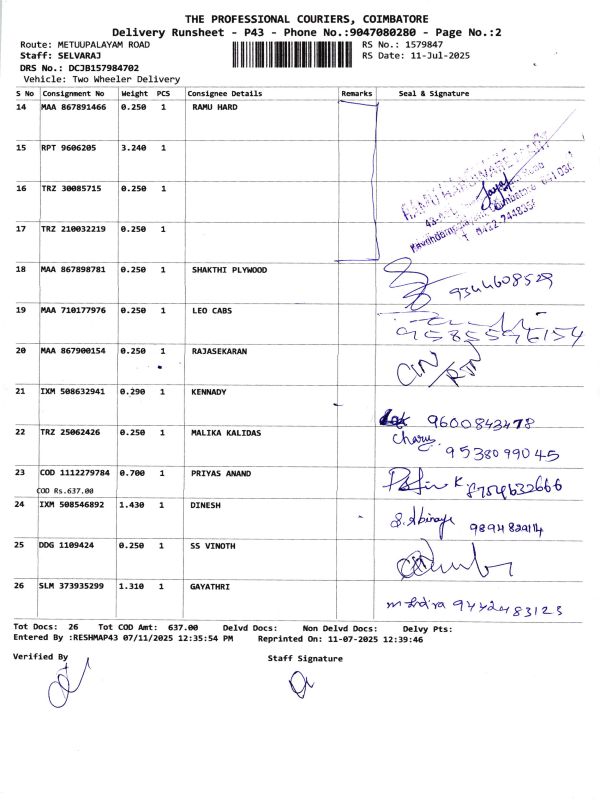 THE PROFESSIONAL COURIERS, COIMBATORE
Delivery Runsheet - P43 - Phone No.:9047080280 - Page No.:2
Route: METUUPALAYAM ROAD RS No.: 1579847
Staff: SELVARAJ RS Date: 11-Jul-2025
DRS No.: DCJB157984702
Vehicle: Two Wheeler Delivery
S No Consignment No Weight PCS Consignee Details Remarks Seal & Signature
14 MAA 867891466 0.250 1 RAMU HARD
15 RPT 9606205 3.240 1
16 TRZ 30085715 0.250 1
17 TRZ 210032219 0.250 1
18 MAA 867898781 0.250 1 SHAKTHI PLYWOOD 9344608529
19 MAA 710177976 0.250 1 LEO CABS 9585596154
20 MAA 867900154 0.250 1 RAJASEKARAN
21 IXM 508632941 0.290 1 KENNADY 9600843478
22 TRZ 25062426 0.250 1 MALIKA KALIDAS 9538099045
23 COD 1112279784 0.700 1 PRIYAS ANAND
COD Rs.637.00
24 IXM 508546892 1.430 1 DINESH
25 DDG 1109424 0.250 1 SS VINOTH
26 SLM 373935299 1.310 1 GAYATHRI 9442483123
Tot Docs: 26 Tot COD Amt: 637.00 Delvd Docs: Non Delvd Docs: Delvy Pts:
Entered By :RESHMAP43 07/11/2025 12:35:54 PM Reprinted On: 11-07-2025 12:39:46
Verified By Staff Signature